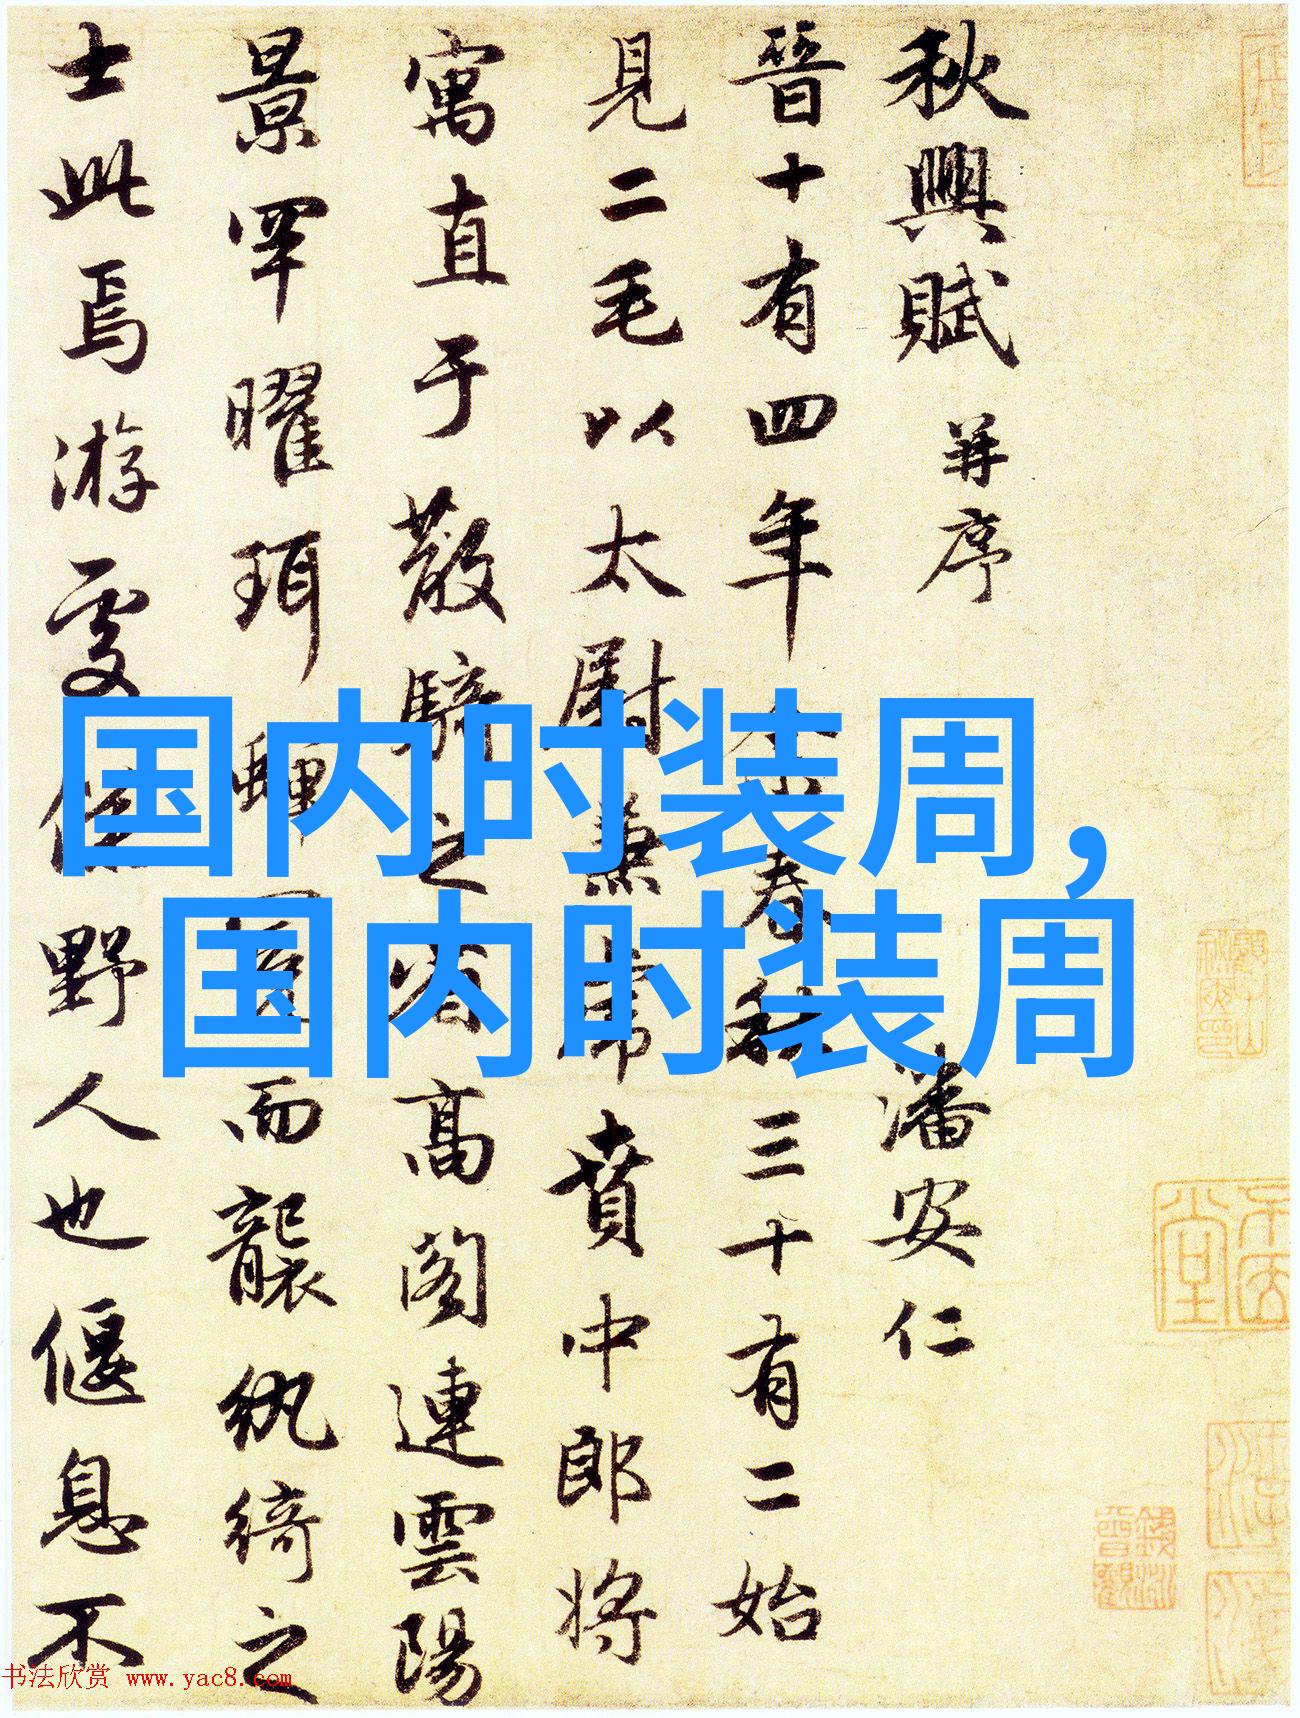 秋興賦 并序 潘安仁
晉十有四年余春秋三十有二始
見二毛以太尉兼虎賁中郎将
寓直于散騎之省高閣連雲陽
景罕曜珥蟬而襲紈綺之
士此焉游處僕野人也偃息不
国内时装周,
国内时装周
书法欣赏 www.yac8.com